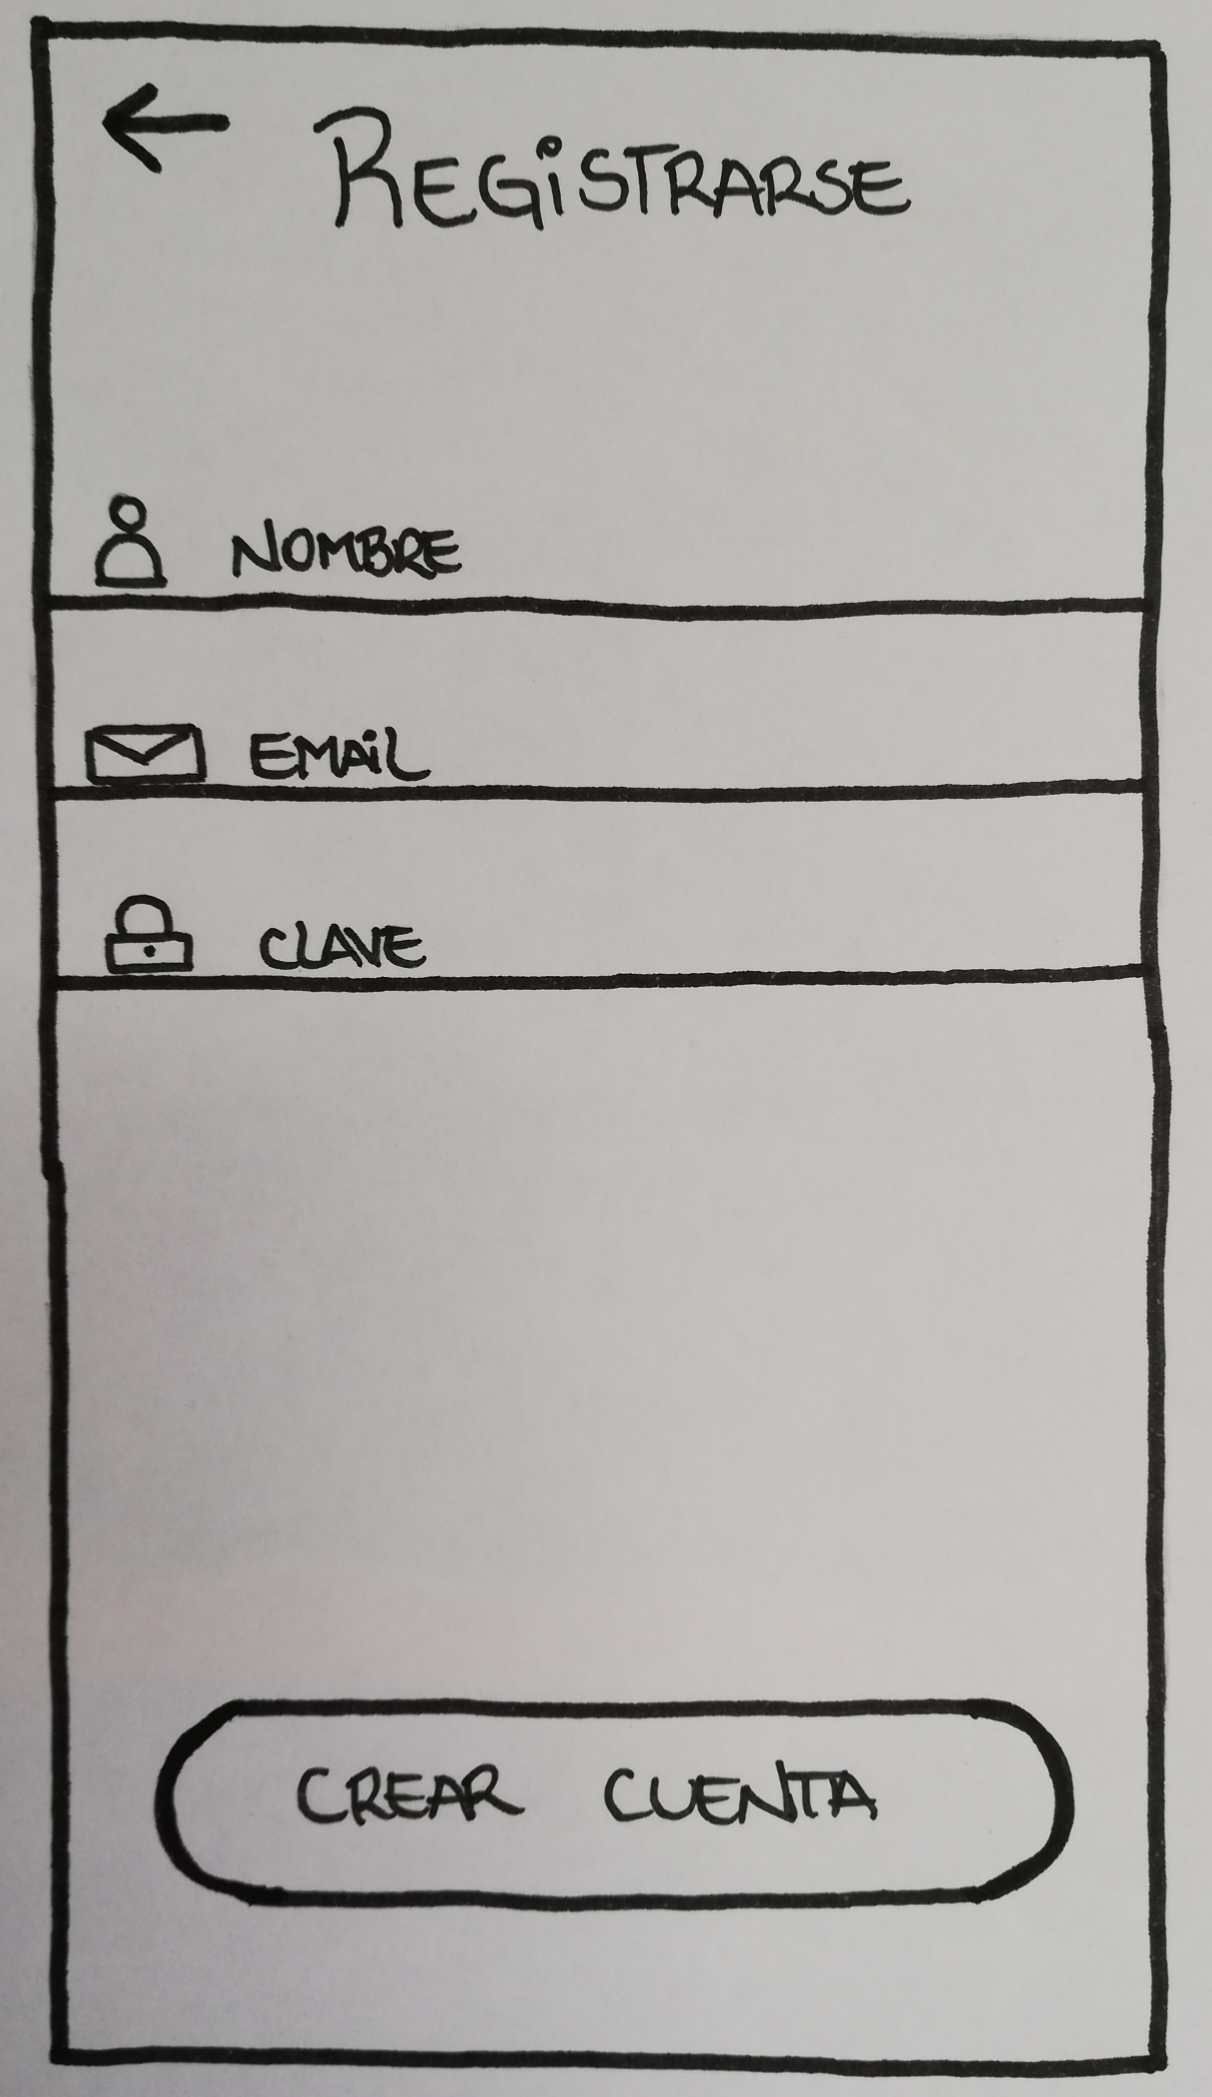 REGiSTRARSE
NOMBRE
EMAiL
CLAVE
CREAR CUENTA